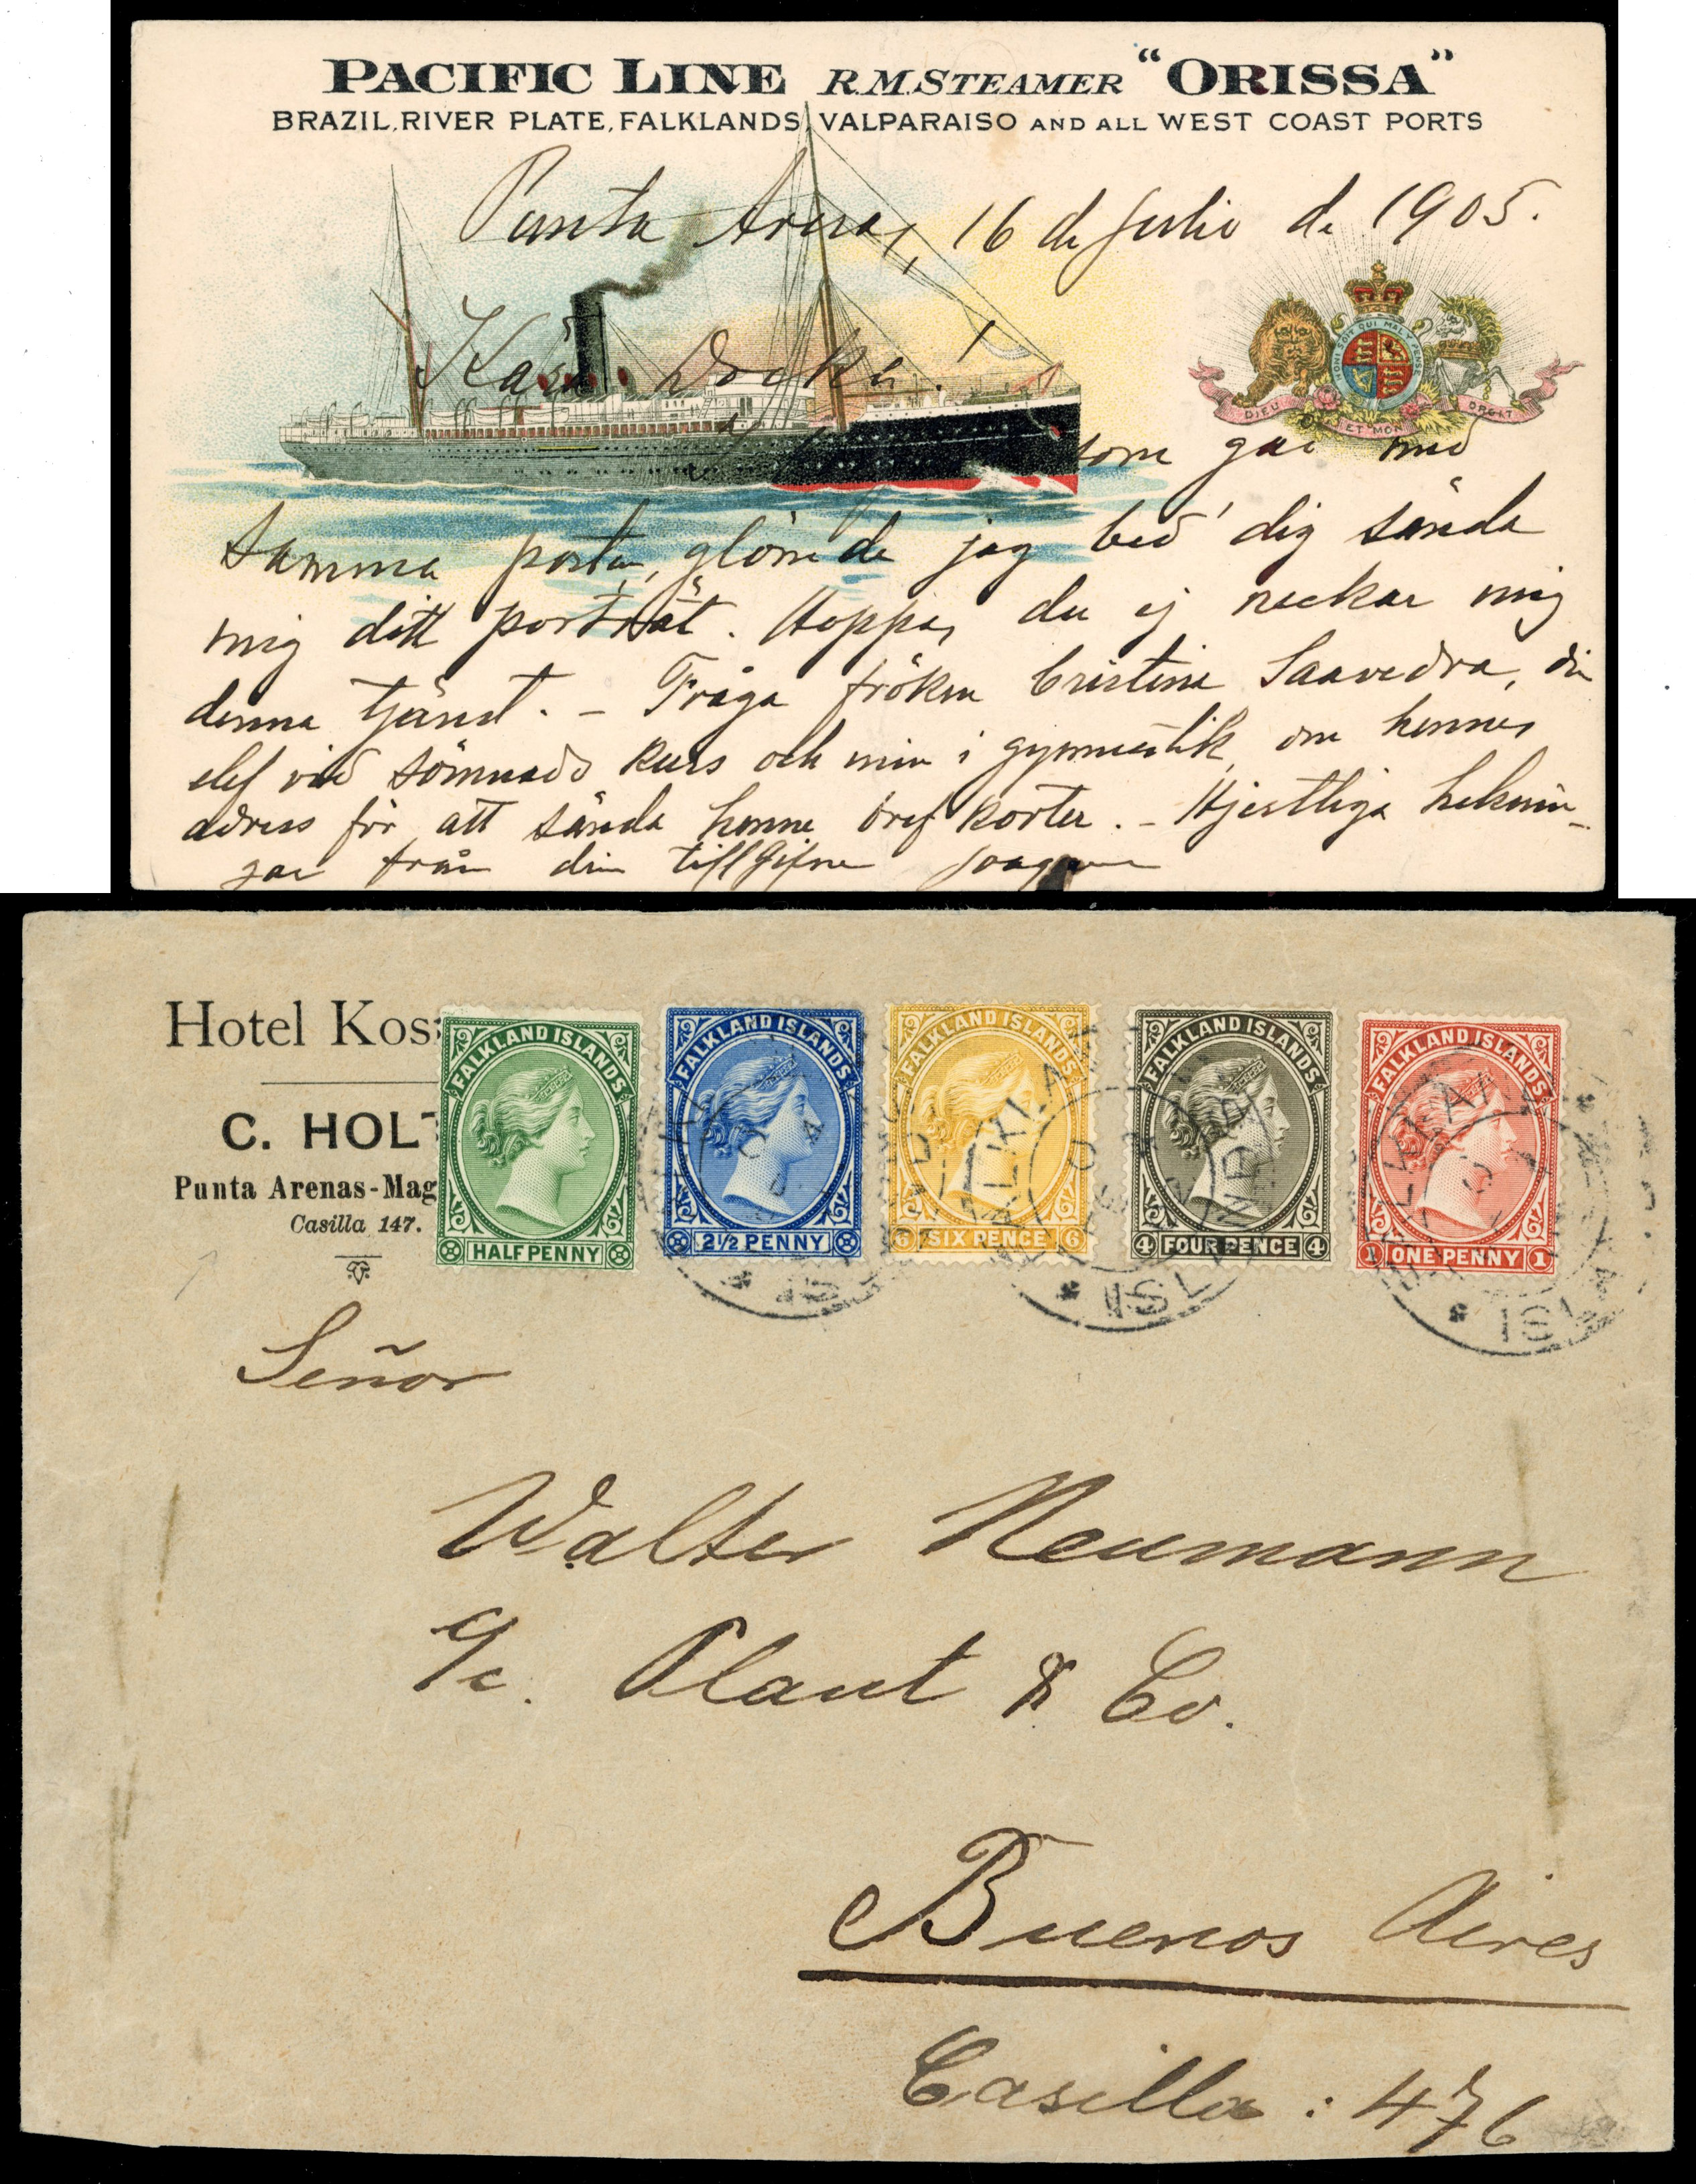 PACIFIC LINE R.M.STEAMER "ORISSA"
BRAZIL, RIVER PLATE, FALKLANDS, VALPARAISO AND ALL WEST COAST PORTS
Punta Arenas, 16 de Julio de 1905.
HONI SOIT QUI MAL Y PENSE
DIEU ET MON DROIT
Kära
som går med
samma posten, glömde jag bed' dig sända
mig ditt porträt. Hoppas du ej neckar mig
denna tjänst. – Fråga fröken Cristina Saavedra, din
elef vid sömnads kurs och min i gymnastik, om hennes
adress för att sända henne bref korter. – Hjertliga helsnin-
gar från din tillgifne
Hotel Kos
C. HOL
Punta Arenas-Mag
Casilla 147.
FALKLAND ISLANDS
HALFPENNY
FALKLAND ISLANDS
2½ PENNY
FALKLAND ISLANDS
6 SIX PENCE 6
FALKLAND ISLANDS
4 FOUR PENCE 4
FALKLAND ISLANDS
1 ONE PENNY 1
Señor
Walter Neumann
c/c. Plaut & Co.
Buenos Aires
Casilla: 476